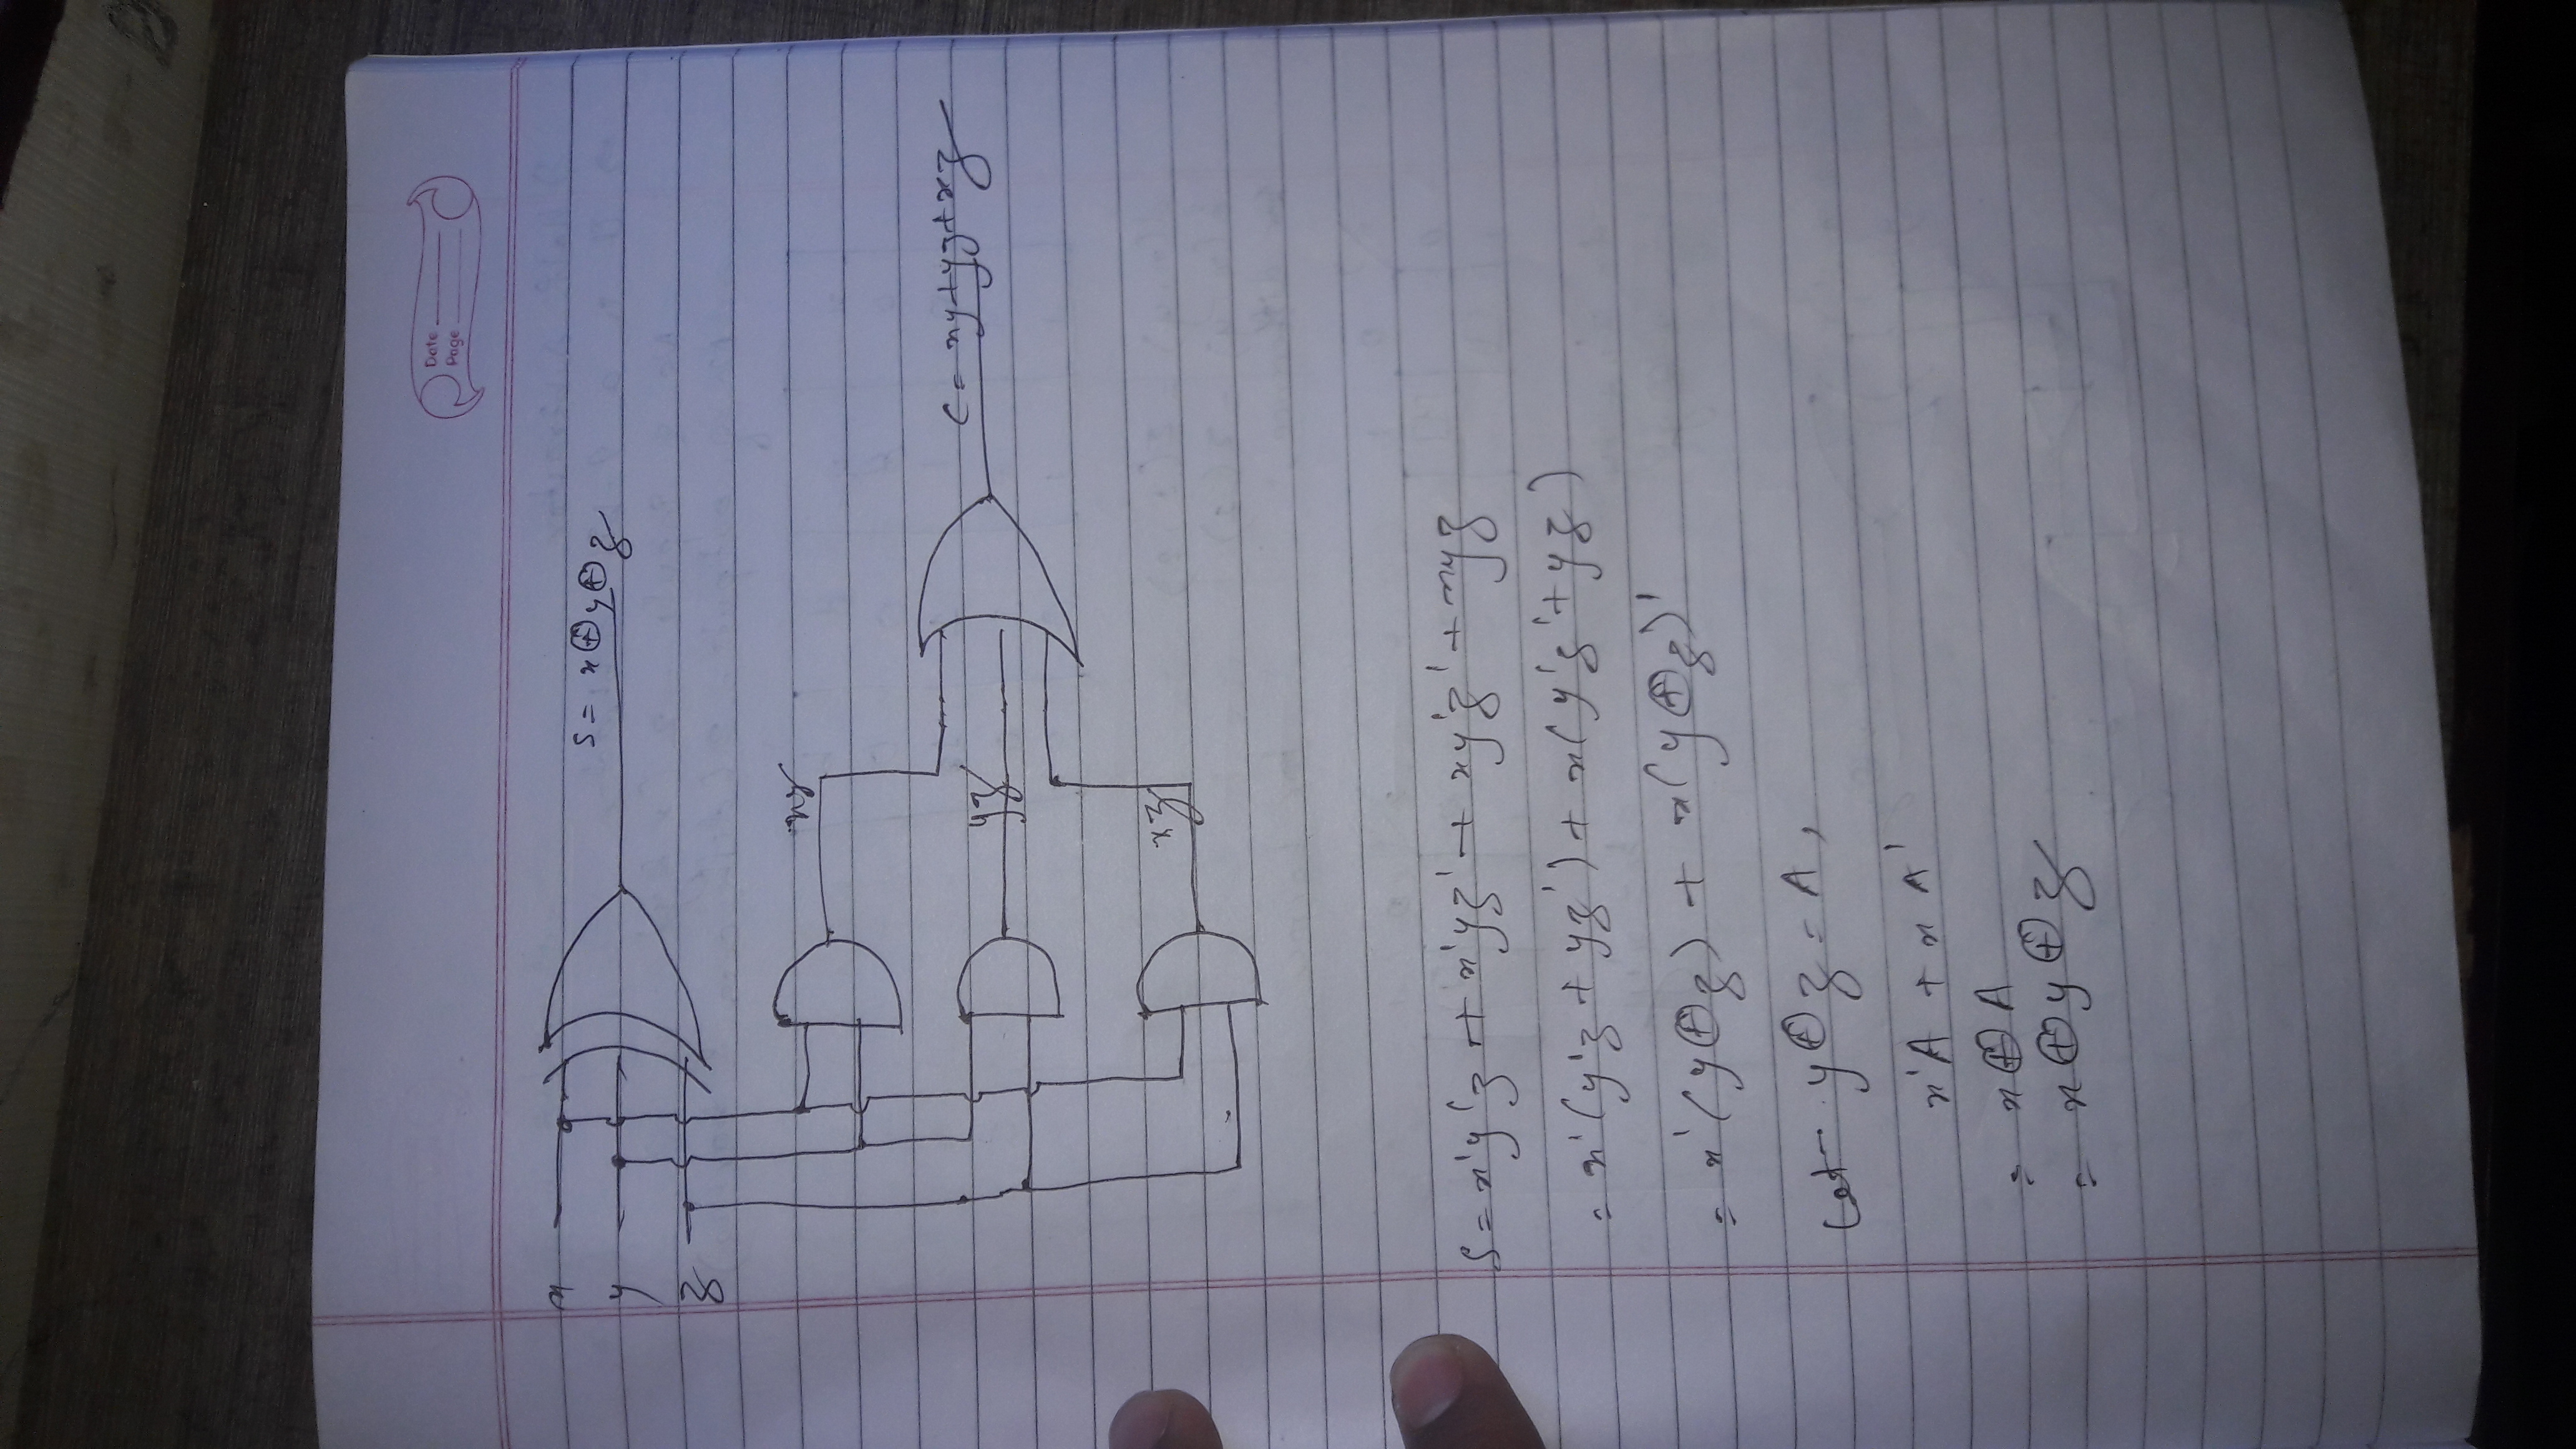 Date
Page
x
y
z
S = x⊕y⊕z
xy
yz
C = xy+yz+xz
xz
S = x'y'z + x'yz' + xy'z' + xyz
= x'(y'z + yz') + x(y'z' + yz)
= x'(y⊕z) + x(y⊕z)'
Let y⊕z = A,
x'A + xA'
= x⊕A
= x⊕y⊕z